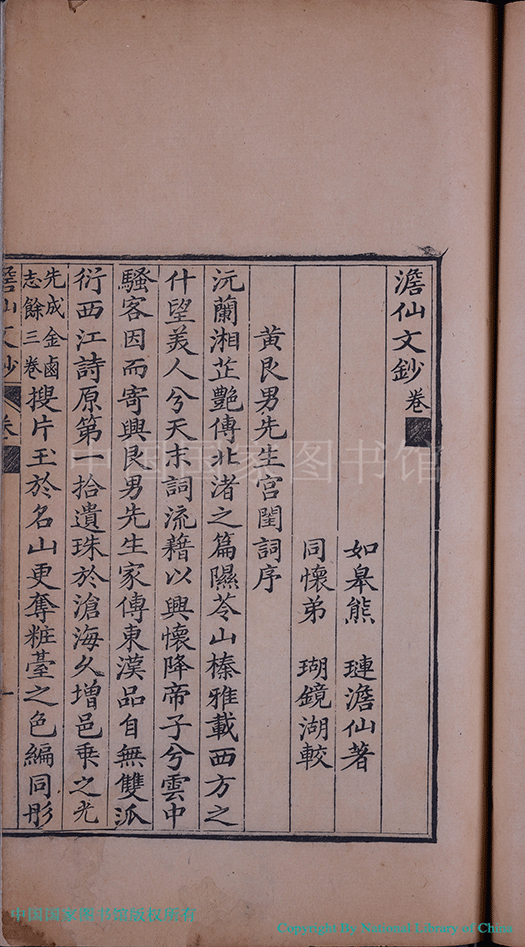 澹仙文鈔 卷
如臯熊 璉澹仙著
同懷弟 瑚鏡湖較
黄艮男先生宫閨詞序
沅蘭湘芷艷傳北渚之篇隰苓山榛雅載西方之
什望美人兮天末詞流藉以興懷降帝子兮雲中
騷客因而寄興艮男先生家傳東漢品自無雙派
衍西江詩原第一拾遺珠於滄海久增邑乘之光
先成金鹵
志餘三卷
搜片玉於名山更奪粧臺之色編同彤
澹仙文鈔 卷
一
中国国家图书馆
中国国家图书馆版权所有
Copyright By National Library of China